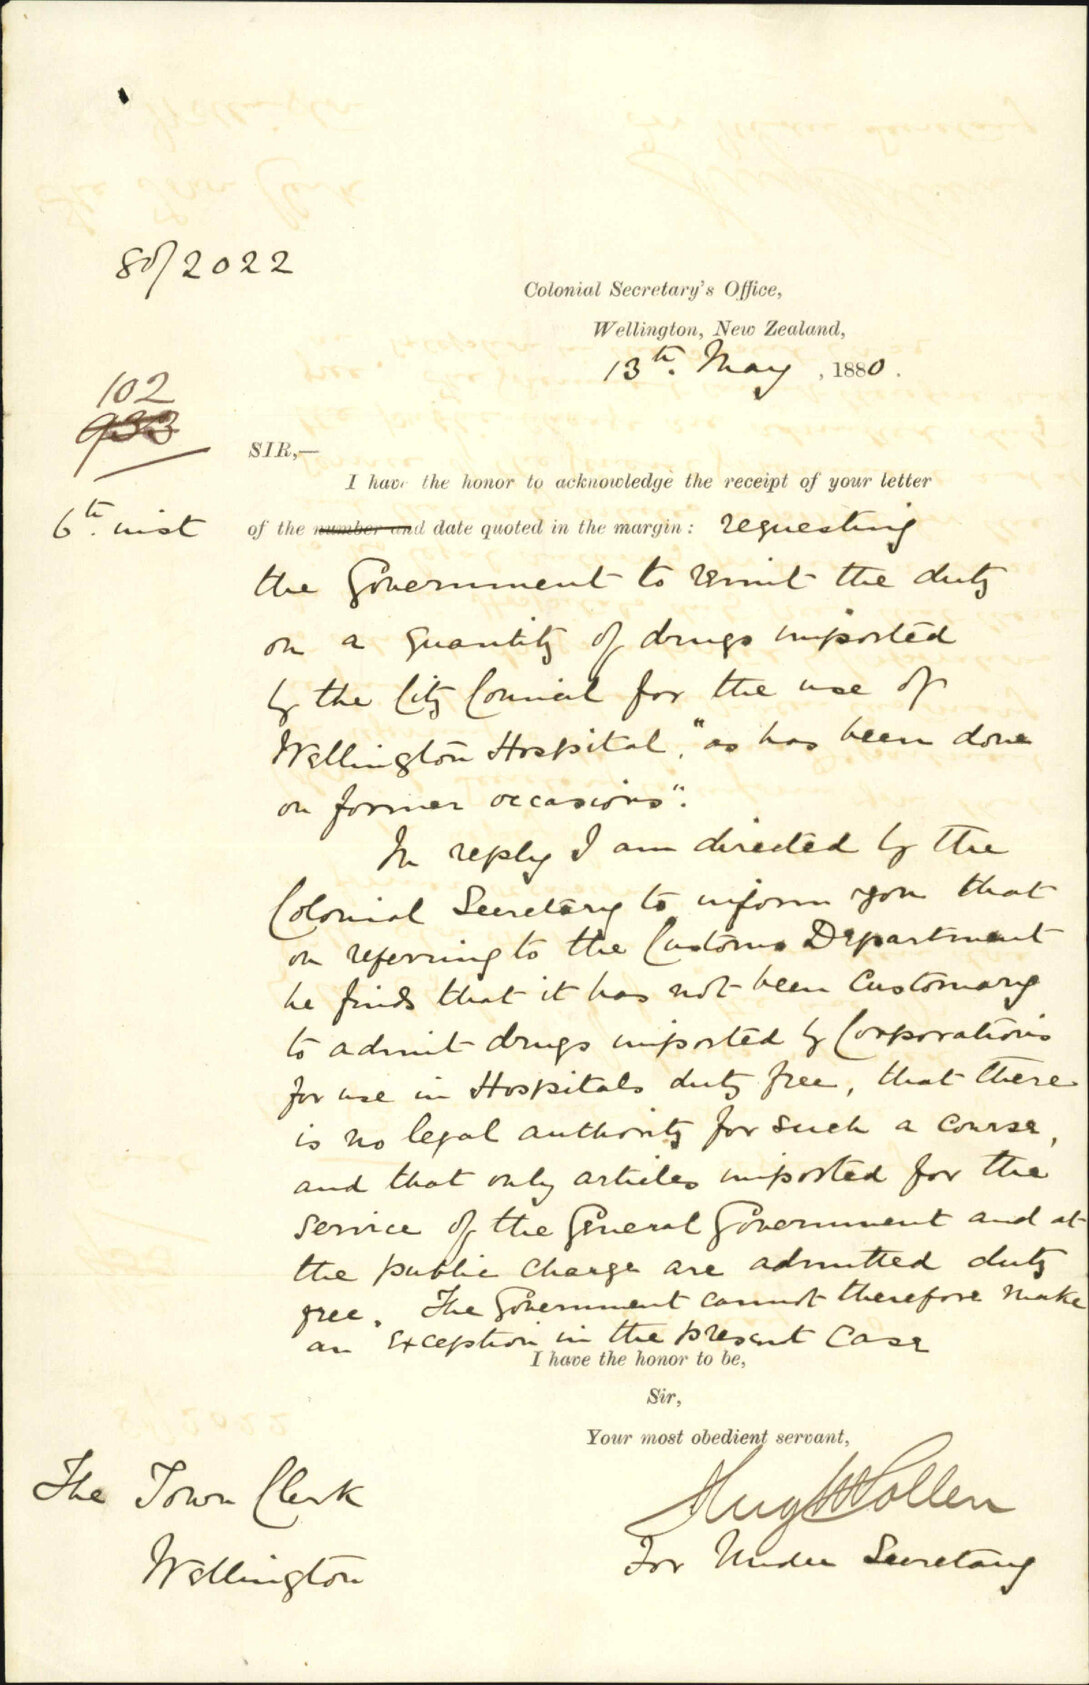 80/2022
Colonial Secretary's Office,
Wellington, New Zealand,
13th. May, 1880.
102
933
SIR,—
I have the honor to acknowledge the receipt of your letter
6th. inst
of the number and date quoted in the margin: requesting
the Government to remit the duty
on a quantity of drugs imported
by the City Council for the use of
Wellington Hospital, "as has been done
on former occasions".
In reply I am directed by the
Colonial Secretary to inform you that
on referring to the Customs Department
he finds that it has not been customary
to admit drugs imported by Corporations
for use in Hospitals duty free, that there
is no legal authority for such a course,
and that only articles imported for the
service of the General Government and at
the public charge are admitted duty
free. The Government cannot therefore make
an exception in the present case
I have the honor to be,
Sir,
Your most obedient servant,
Hugh Pollen
For Under Secretary
The Town Clerk
Wellington